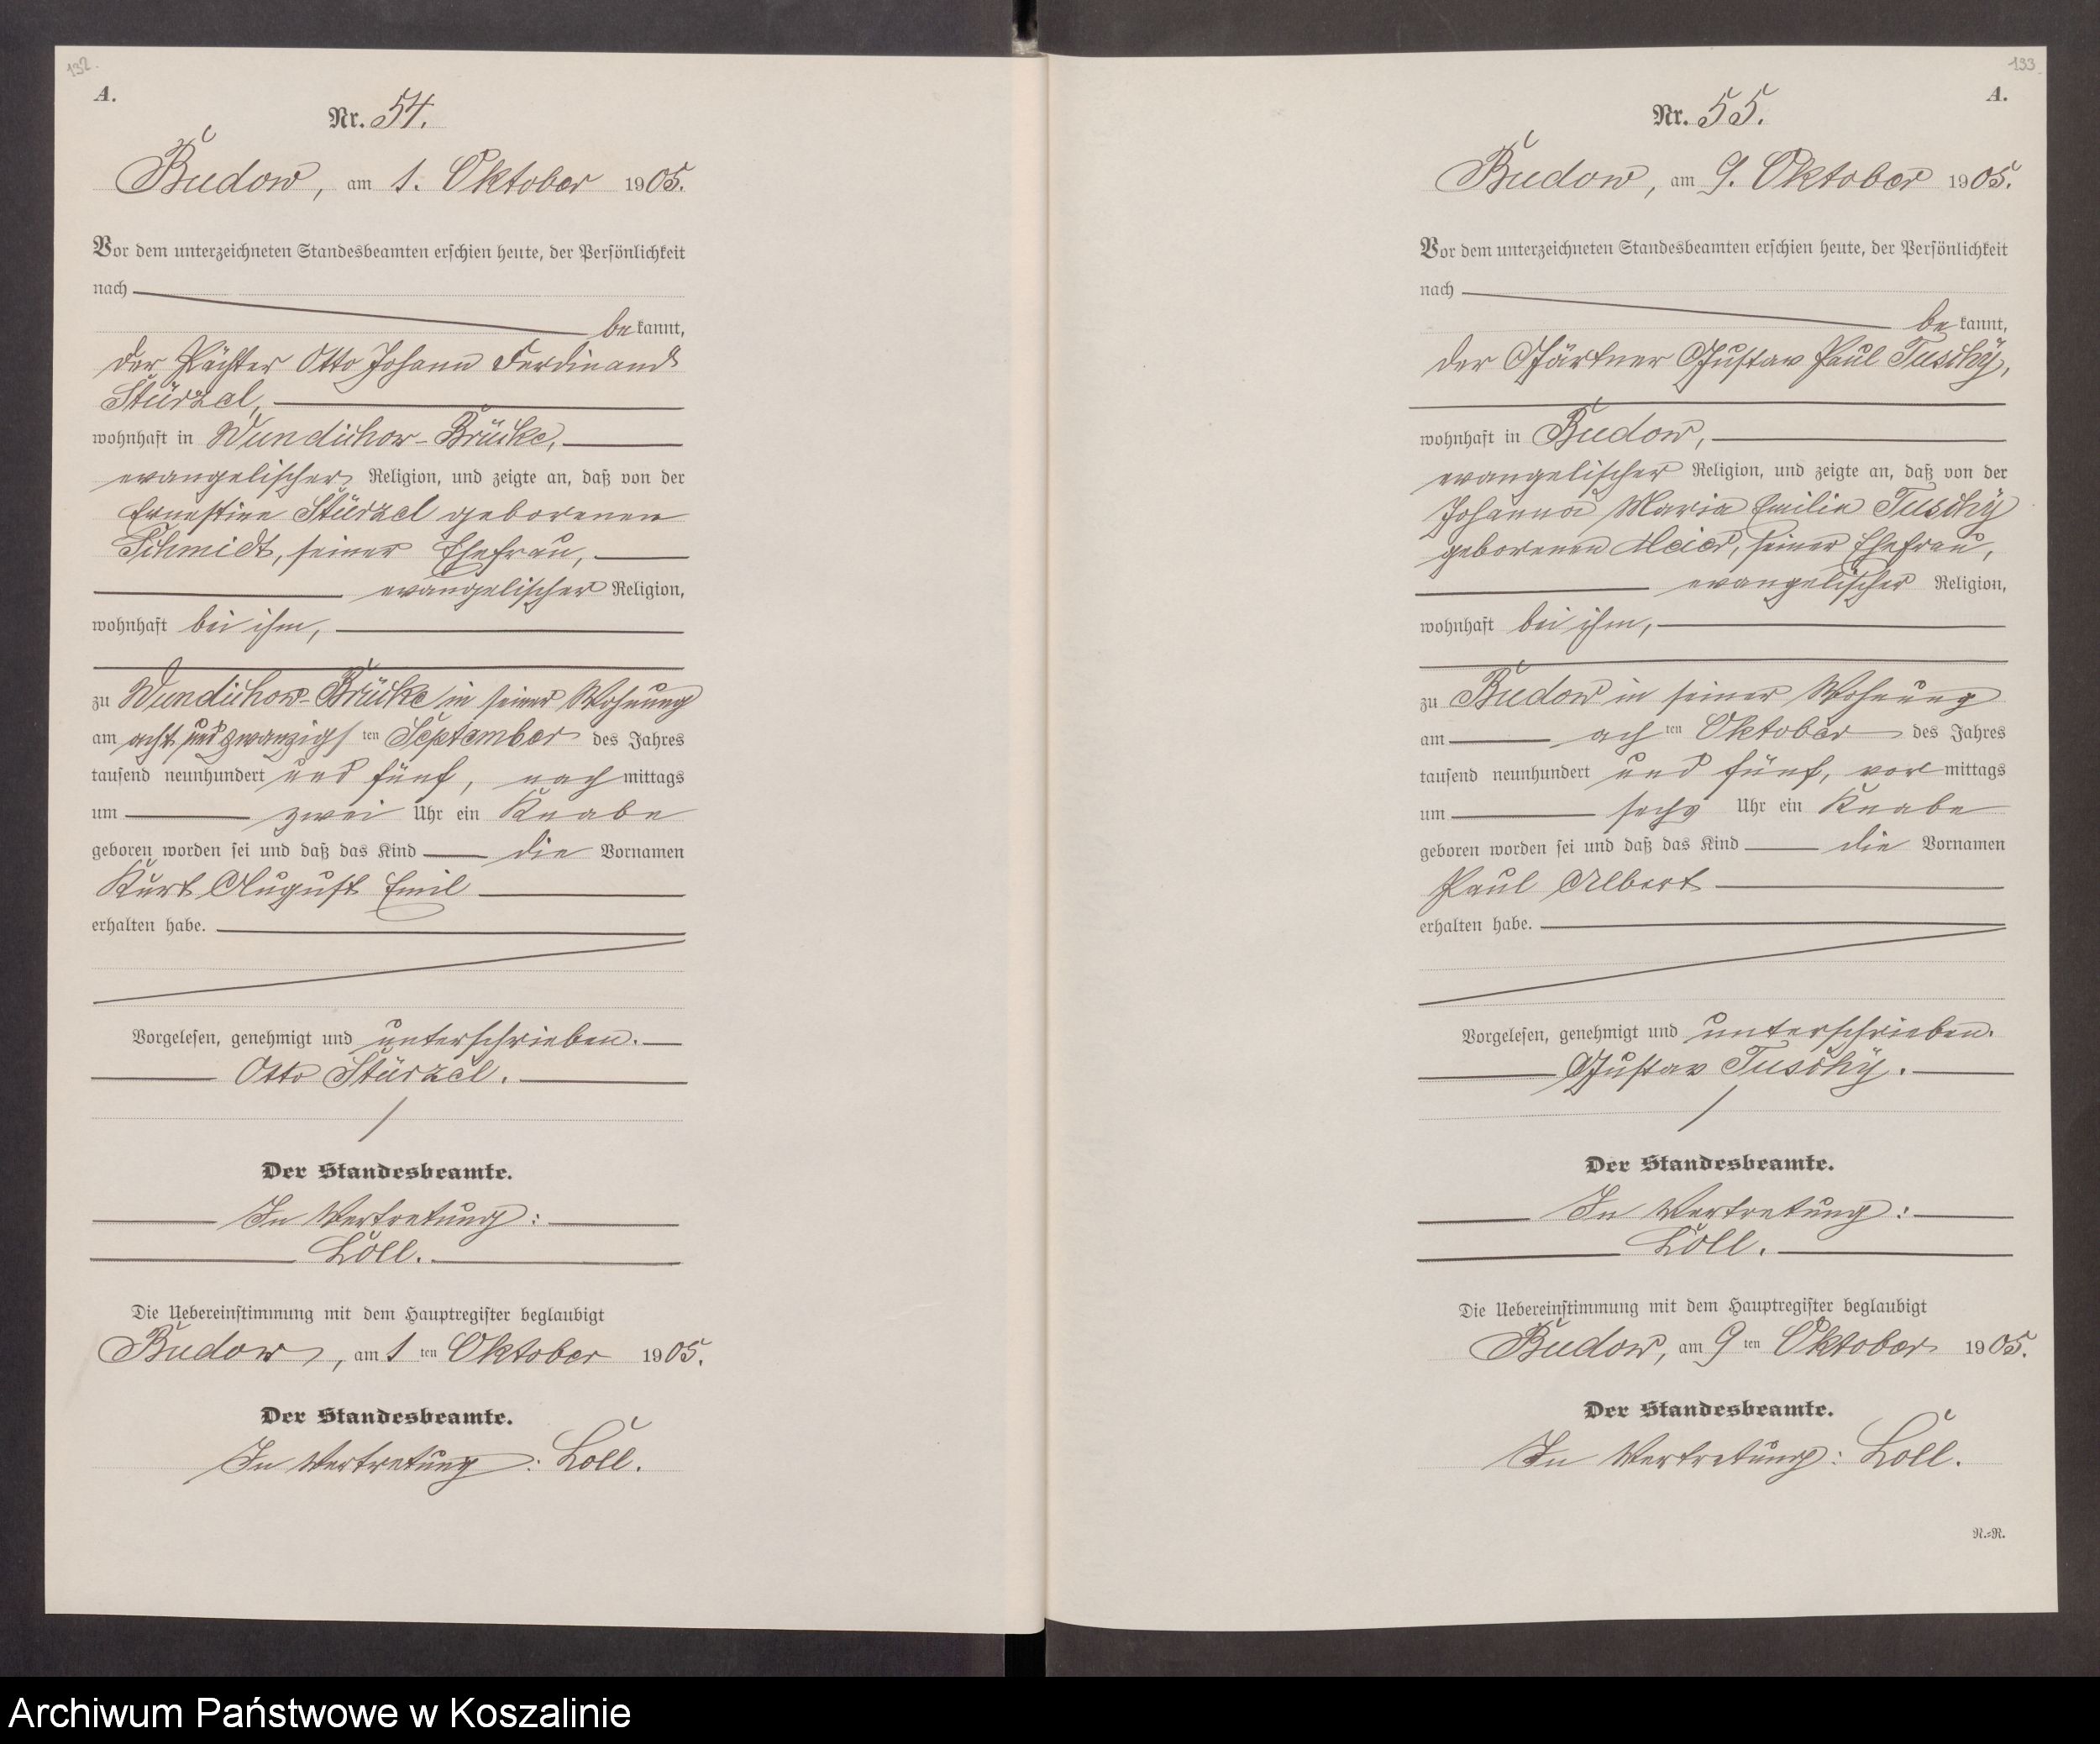 132.
A.
Nr. 54.
Budow, am 1. Oktober 1905.
Vor dem unterzeichneten Standesbeamten erschien heute, der Persönlichkeit
nach
bekannt,
der Pächter Otto Johann Ferdinand
Stürzel,
wohnhaft in Wundichow-Brücke,
evangelischer Religion, und zeigte an, daß von der
Ernestine Stürzel geborenen
Schmidt, seiner Ehefrau,
evangelischer Religion,
wohnhaft bei ihm,
zu Wundichow-Brücke in seiner Wohnung
am acht und zwanzigsten September des Jahres
tausend neunhundert und fünf, nachmittags
um zwei Uhr ein Knabe
geboren worden sei und daß das Kind die Vornamen
Kurt August Emil
erhalten habe.
Vorgelesen, genehmigt und unterschrieben.
Otto Stürzel.
Der Standesbeamte.
In Vertretung:
Loll.
Die Uebereinstimmung mit dem Hauptregister beglaubigt
Budow, am 1ten Oktober 1905.
Der Standesbeamte.
In Vertretung: Loll.
133.
A.
Nr. 55.
Budow, am 9. Oktober 1905.
Vor dem unterzeichneten Standesbeamten erschien heute, der Persönlichkeit
nach
bekannt,
der Gärtner Gustav Paul Tuschÿ,
wohnhaft in Budow,
evangelischer Religion, und zeigte an, daß von der
Johanna Maria Emilie Tuschÿ
geborenen Meier, seiner Ehefrau,
evangelischer Religion,
wohnhaft bei ihm,
zu Budow in seiner Wohnung
am achten Oktober des Jahres
tausend neunhundert und fünf, vormittags
um sechs Uhr ein Knabe
geboren worden sei und daß das Kind die Vornamen
Paul Albert
erhalten habe.
Vorgelesen, genehmigt und unterschrieben.
Gustav Tuschÿ.
Der Standesbeamte.
In Vertretung:
Loll.
Die Uebereinstimmung mit dem Hauptregister beglaubigt
Budow, am 9ten Oktober 1905.
Der Standesbeamte.
In Vertretung: Loll.
R.=R.
Archiwum Państwowe w Koszalinie